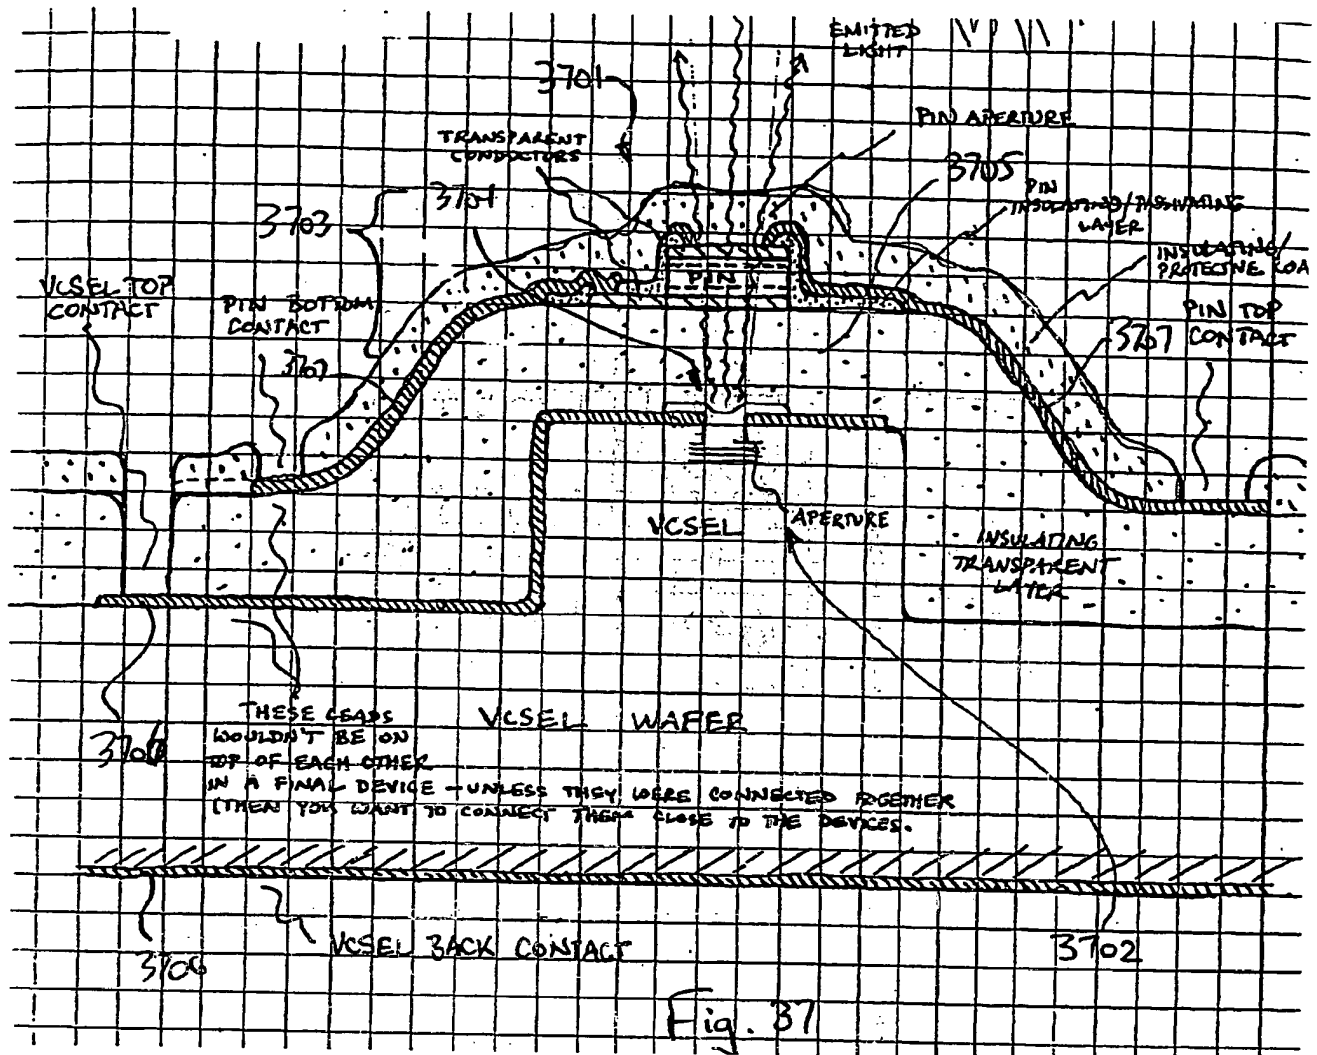 EMITTED
LIGHT
3701
PIN APERTURE
TRANSPARENT
CONDUCTORS
3705
3701
PIN
INSULATING/PASSIVATING
LAYER
3703
INSULATING/
PROTECTIVE COA
VCSEL TOP
CONTACT
PIN BOTTOM
CONTACT
PIN
PIN TOP
CONTACT
3707
3707
VCSEL
APERTURE
INSULATING
TRANSPARENT
LAYER
THESE LEADS
WOULDN'T BE ON
TOP OF EACH OTHER
IN A FINAL DEVICE - UNLESS THEY WERE CONNECTED TOGETHER
(THEN YOU WANT TO CONNECT THEM CLOSE TO THE DEVICES.
VCSEL WAFER
3706
VCSEL BACK CONTACT
3706
3702
Fig. 37